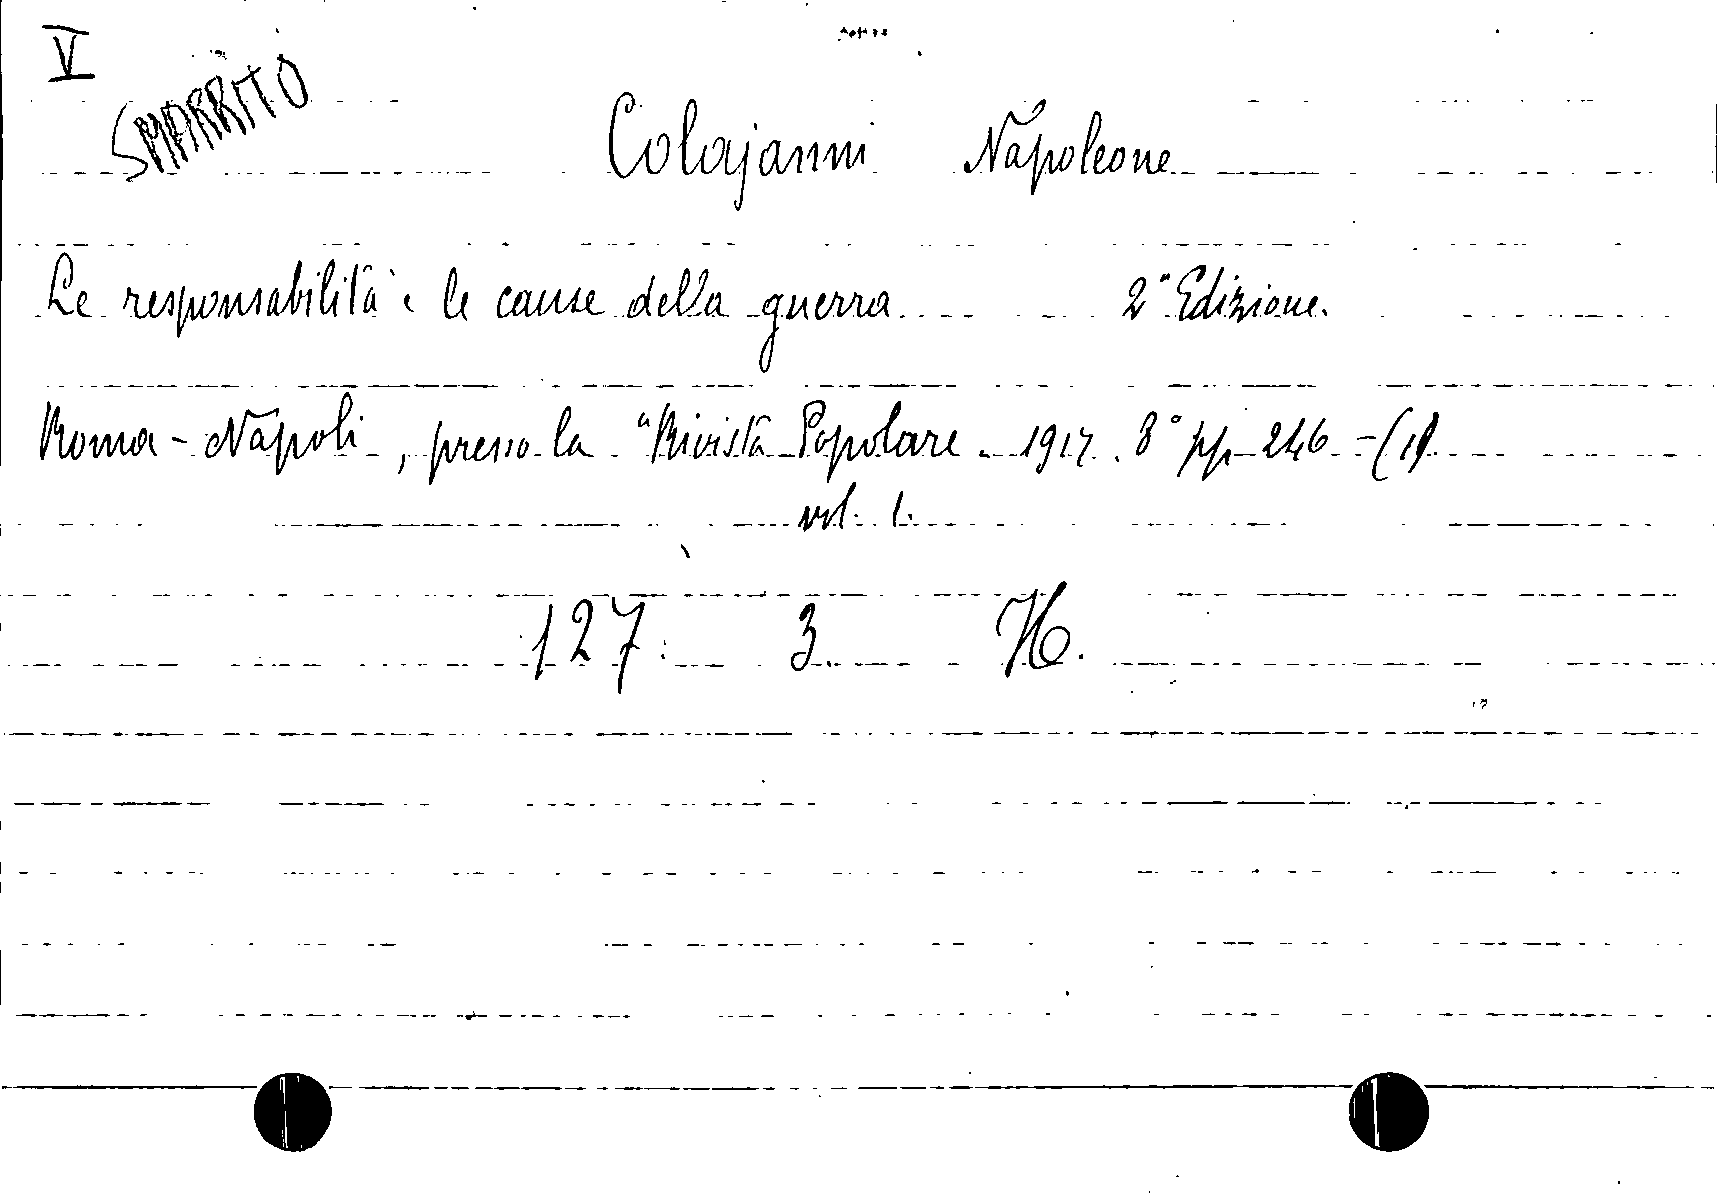 V
SMARRITO
Colajanni Napoleone
Le responsabilità e le cause della guerra 2ª Edizione.
Roma - Napoli, presso la "Rivista Popolare. 1917. 8° pp 246 - (1)
vol. 1.
127. 3. H.